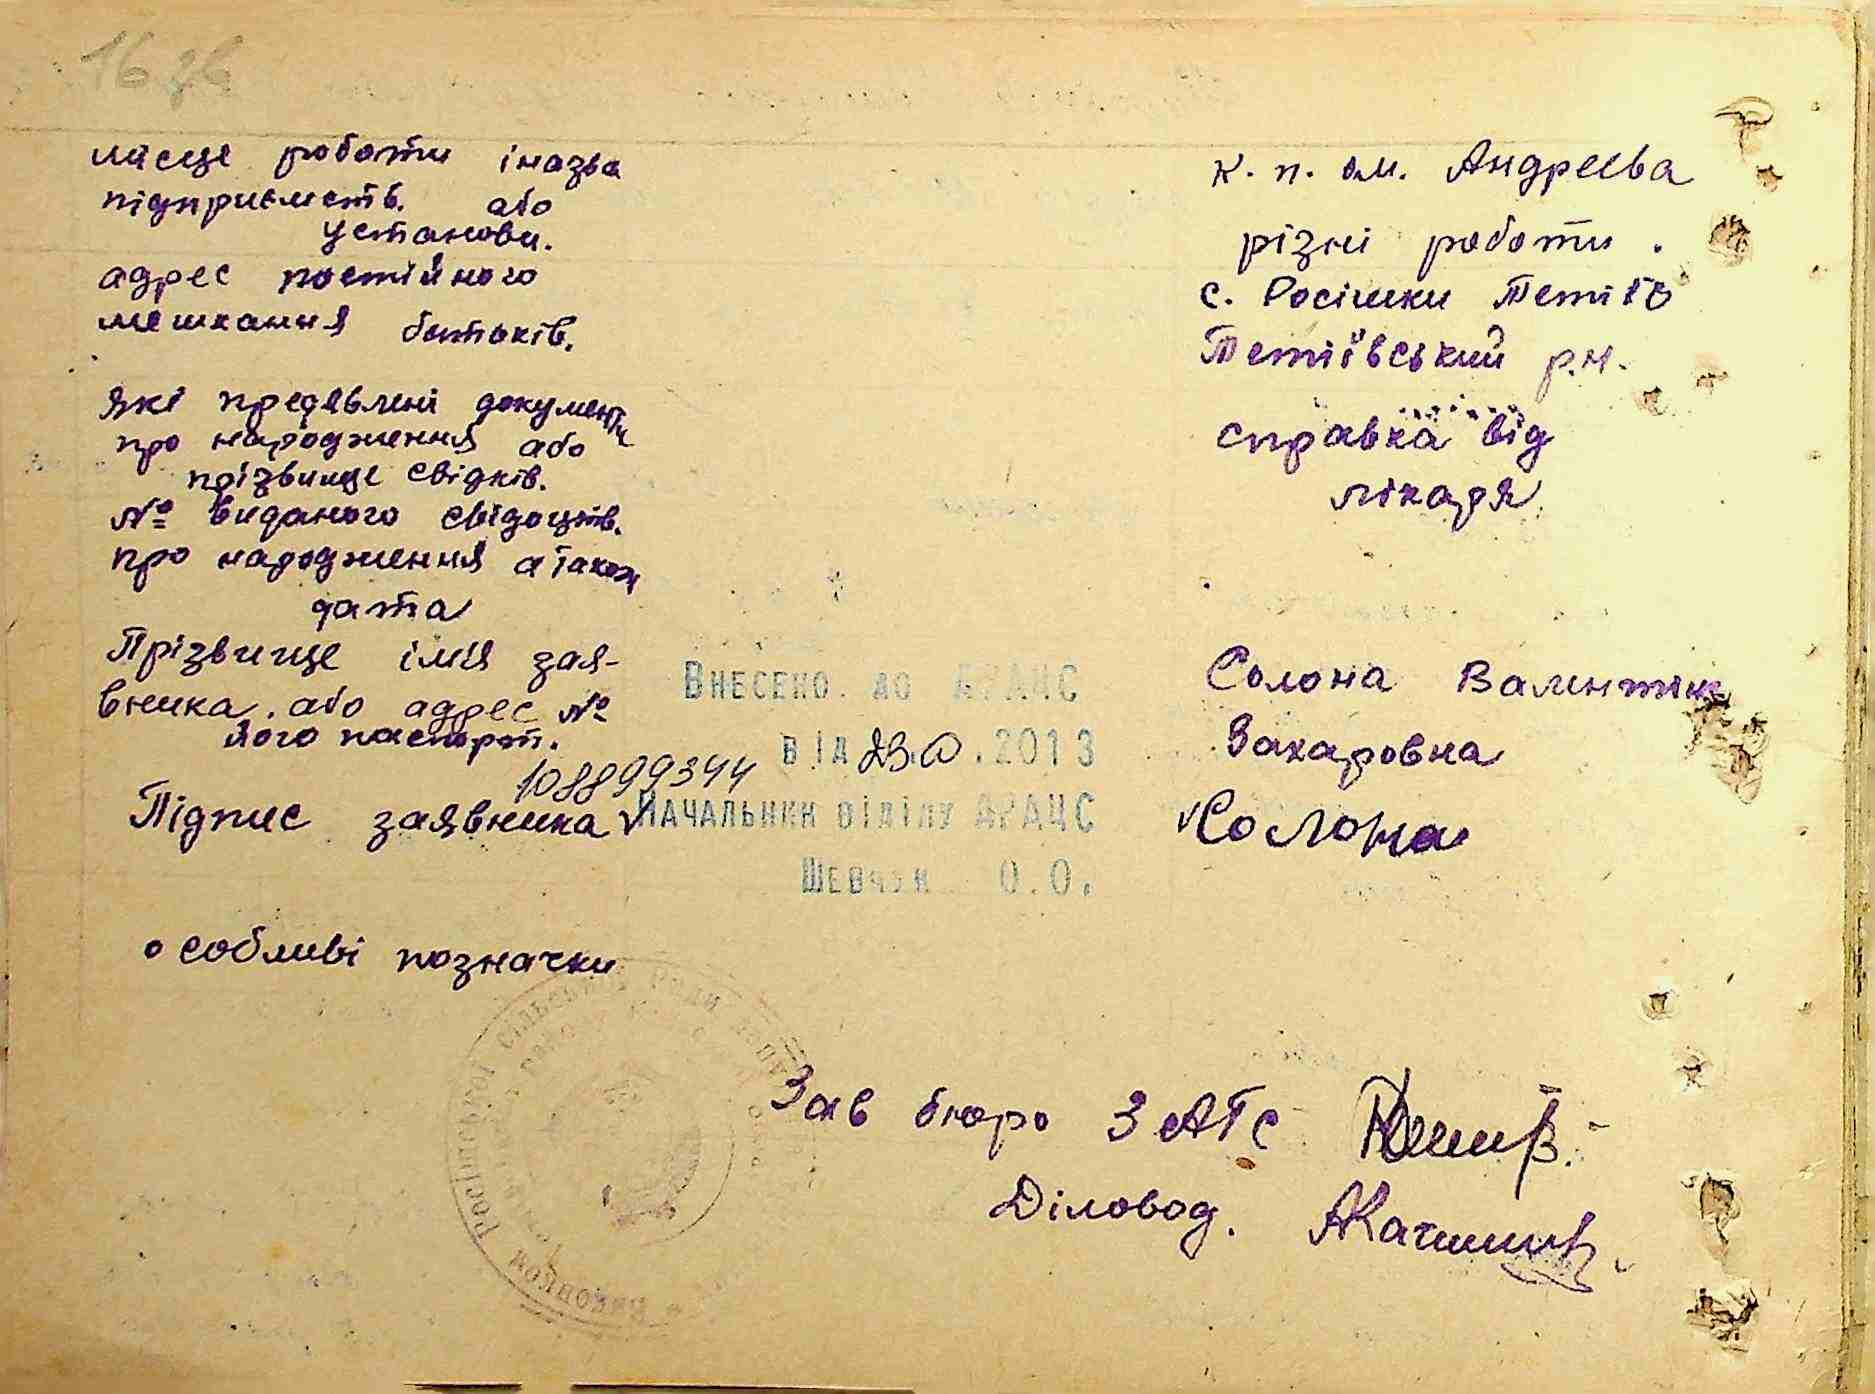 16 зв
місце роботи і назва
підприємств. або
установи.
адрес постійного
мешкання батьків.
які предявлені документи
про народження або
прізвище свідків.
№ виданого свідоцтв.
про народження а також
дата
Прізвище імія зая-
вника. або адрес №
його паспорт.
108899344
Підпис заявника
особливі позначки
к. п. ом. Андреєва
різні роботи.
с. Росішки Тетіїв
Тетіївський р.н.
справка від
лікаря
Солона Валинтина
Захаровна
Солона
Внесено до АРАЦС
від 2013
Начальник відділу АРАЦС
Шевчук О.О.
Зав бюро ЗАГС
Діловод.
Росішської сільської ради